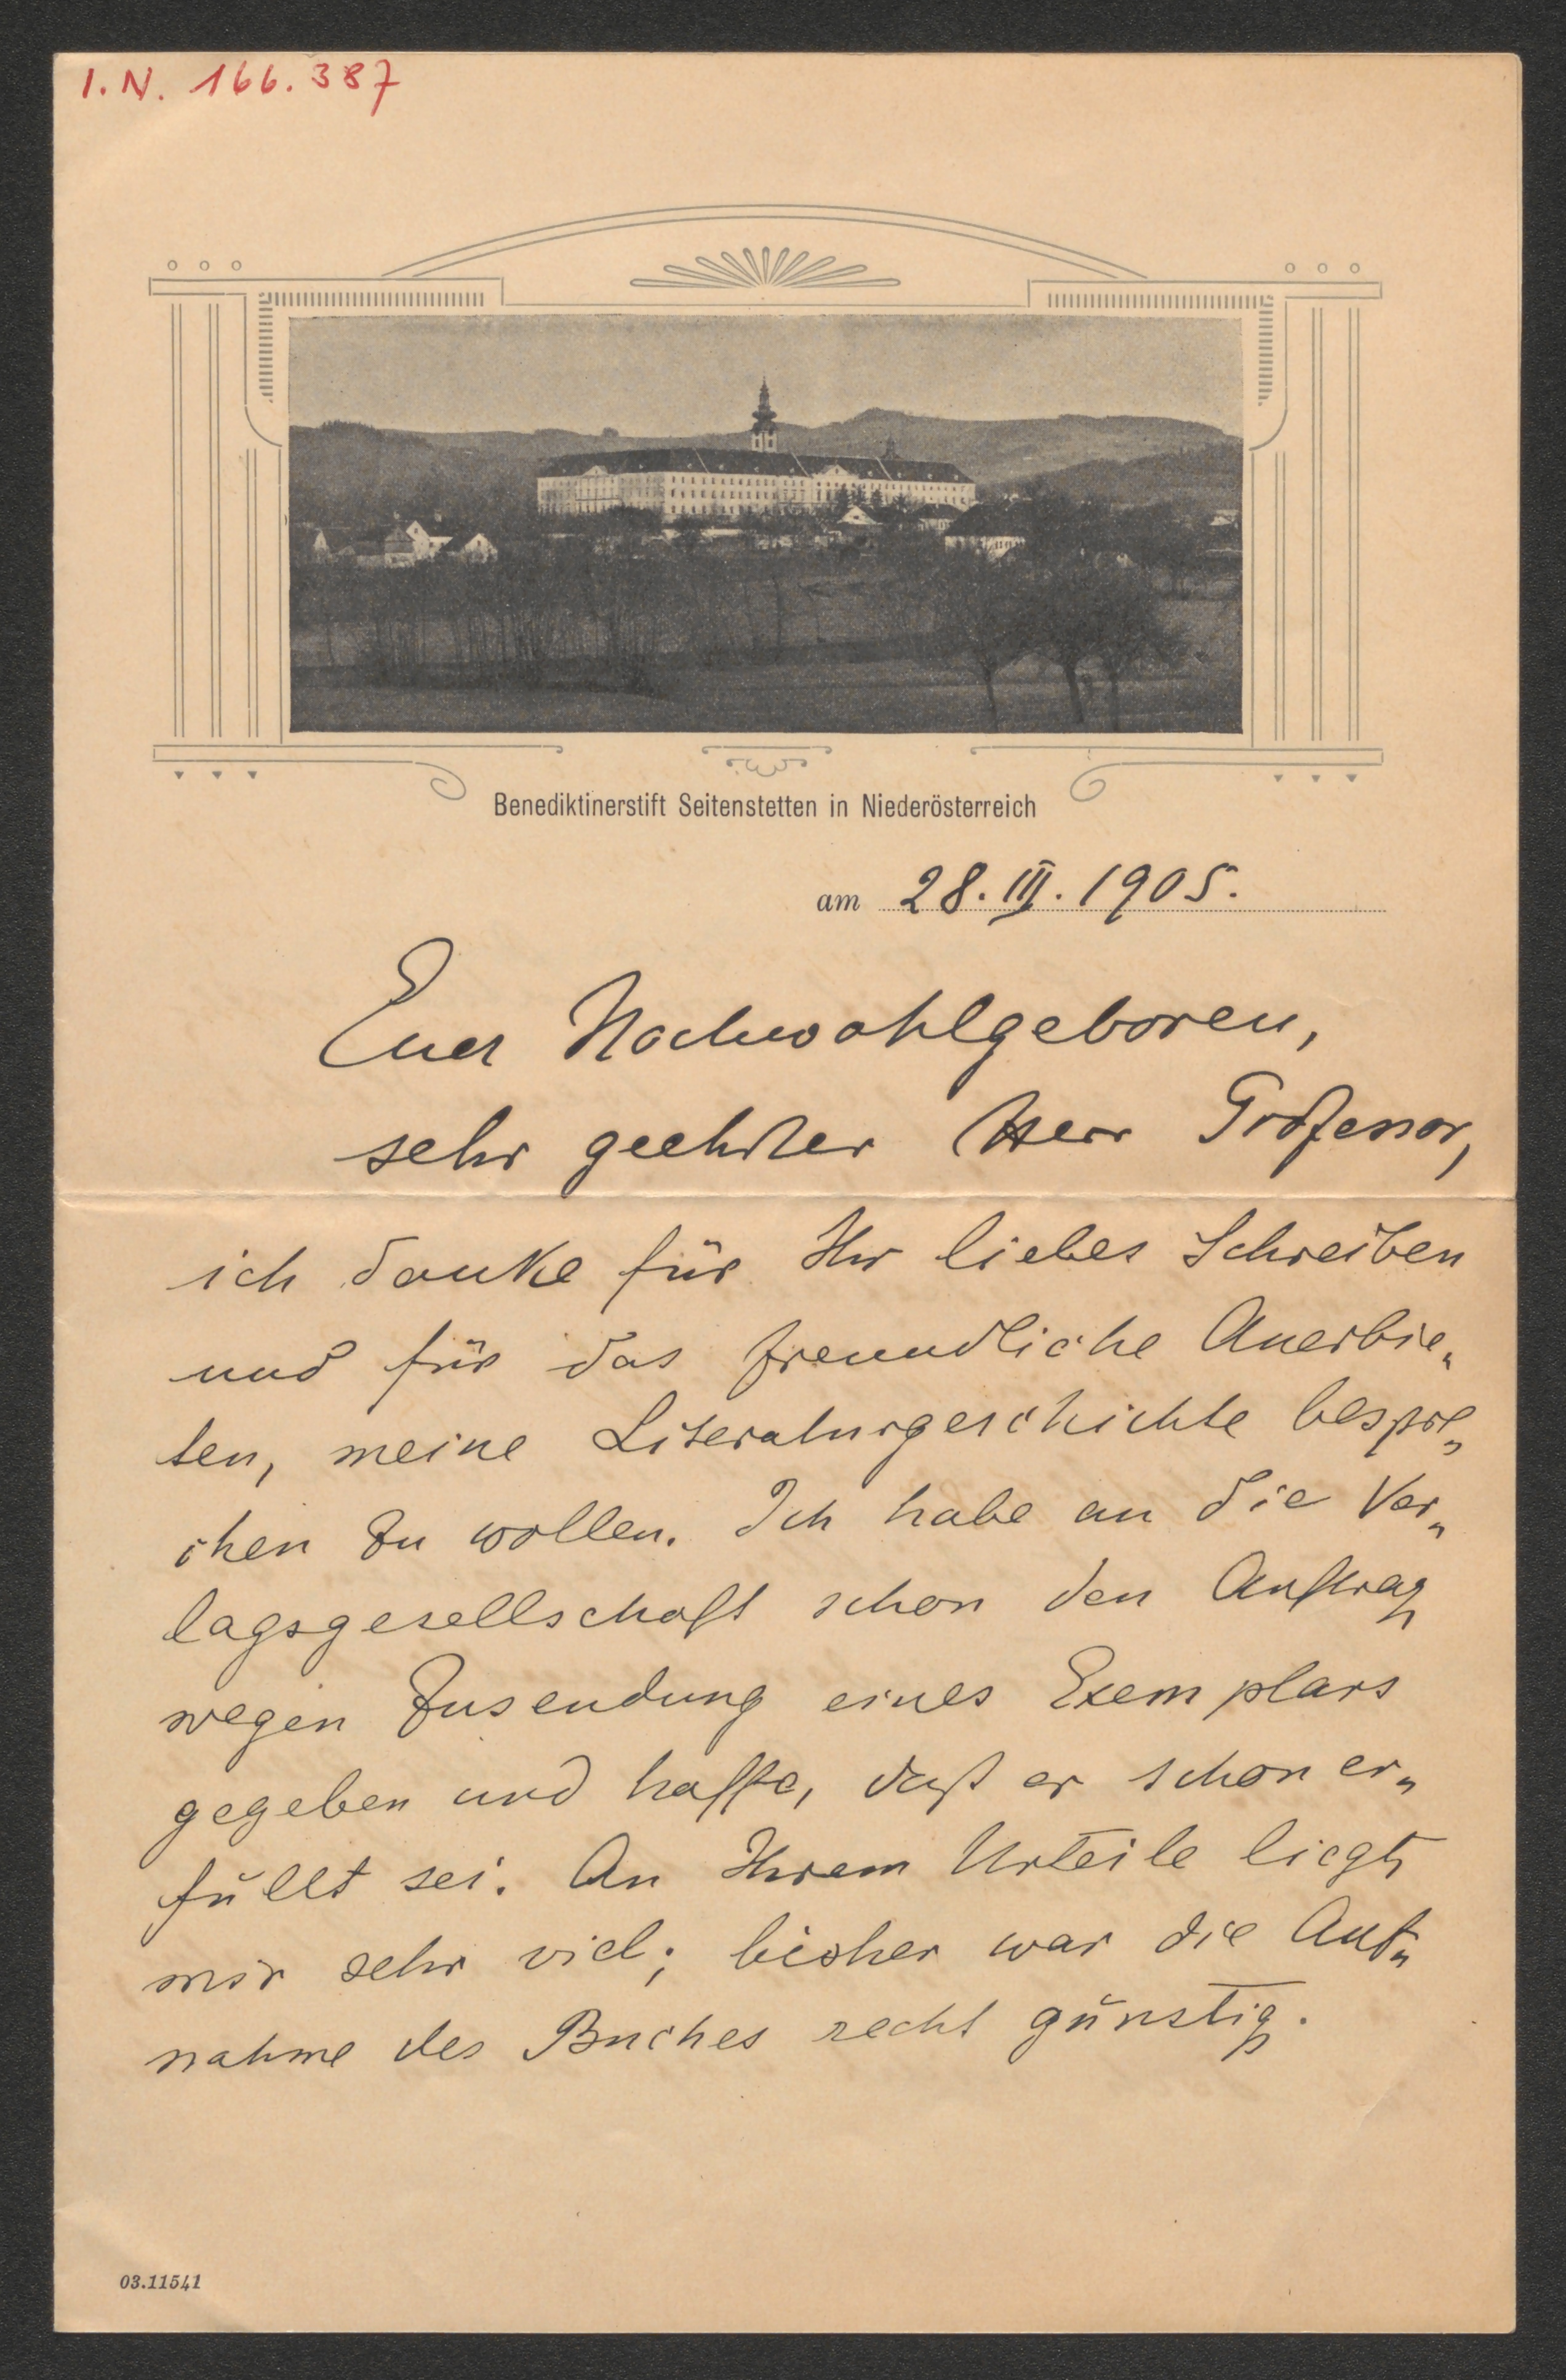 I. N. 166.387
Benediktinerstift Seitenstetten in Niederösterreich
am 28. III. 1905.
Euer Hochwohlgeboren,
sehr geehrter Herr Professor,
ich danke für Ihr liebes Schreiben
und für das freundliche Anerbie„
ten, meine Literaturgeschichte bespre„
chen zu wollen. Ich habe an die Ver„
lagsgesellschaft schon den Auftrag
wegen Zusendung eines Exemplars
gegeben und hoffe, daß er schon er„
füllt sei. An Ihrem Urteile liegt
mir sehr viel; bisher war die Auf„
nahme des Buches recht günstig.
03.11541